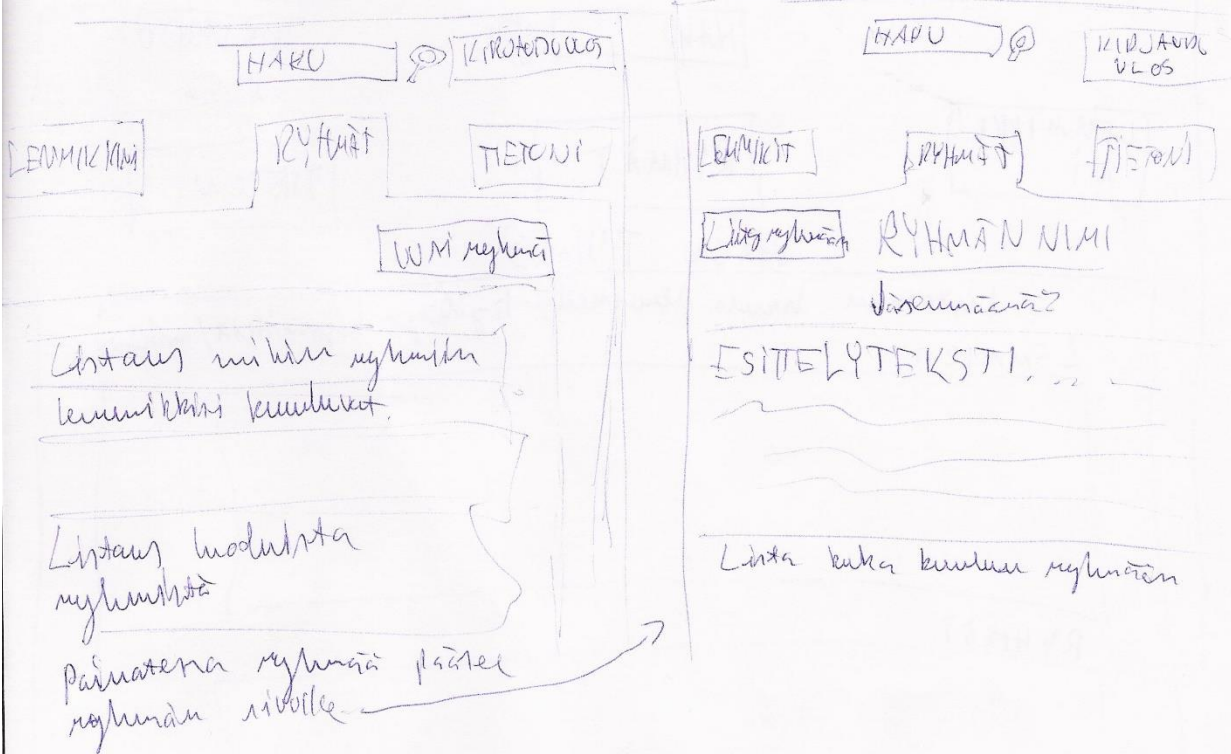 HAKU KIRJAUDU ULOS
LEMMIKKINI RYHMÄT TIETONI
UUSI ryhmä
Listaus mihin ryhmiin
lemmikkini kuuluvat.
Listaus luoduista
ryhmistä
Painatessa ryhmää pääsee
ryhmän sivuille
HAKU KIRJAUDU
ULOS
LEMMIKIT RYHMÄT TIETONI
Liity ryhmään RYHMÄN NIMI
Jäsenmäärä?
ESITTELYTEKSTI...
Lista kuka kuuluu ryhmään